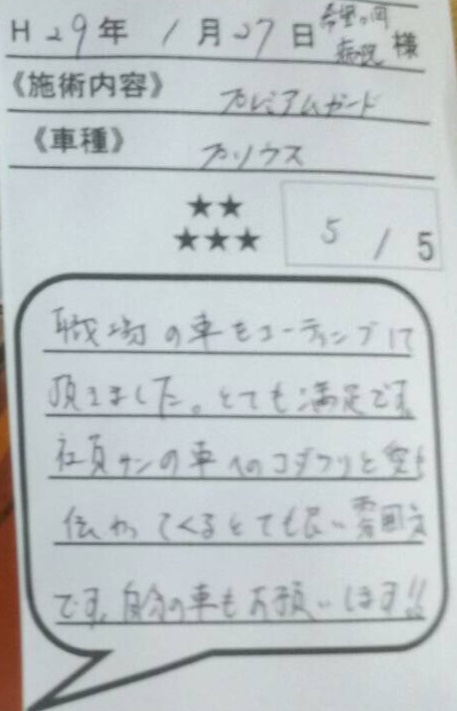 H29年 1月27日 希望の岡病院 様
《施術内容》 プレミアムガード
《車種》 プリウス
★★
★★★
5 / 5
職場の車をコーティングして
頂きました。とても満足です。
社員サンの車へのコダワリと愛も
伝わってくるとても良い雰囲気
です。自分の車もお願いします!!